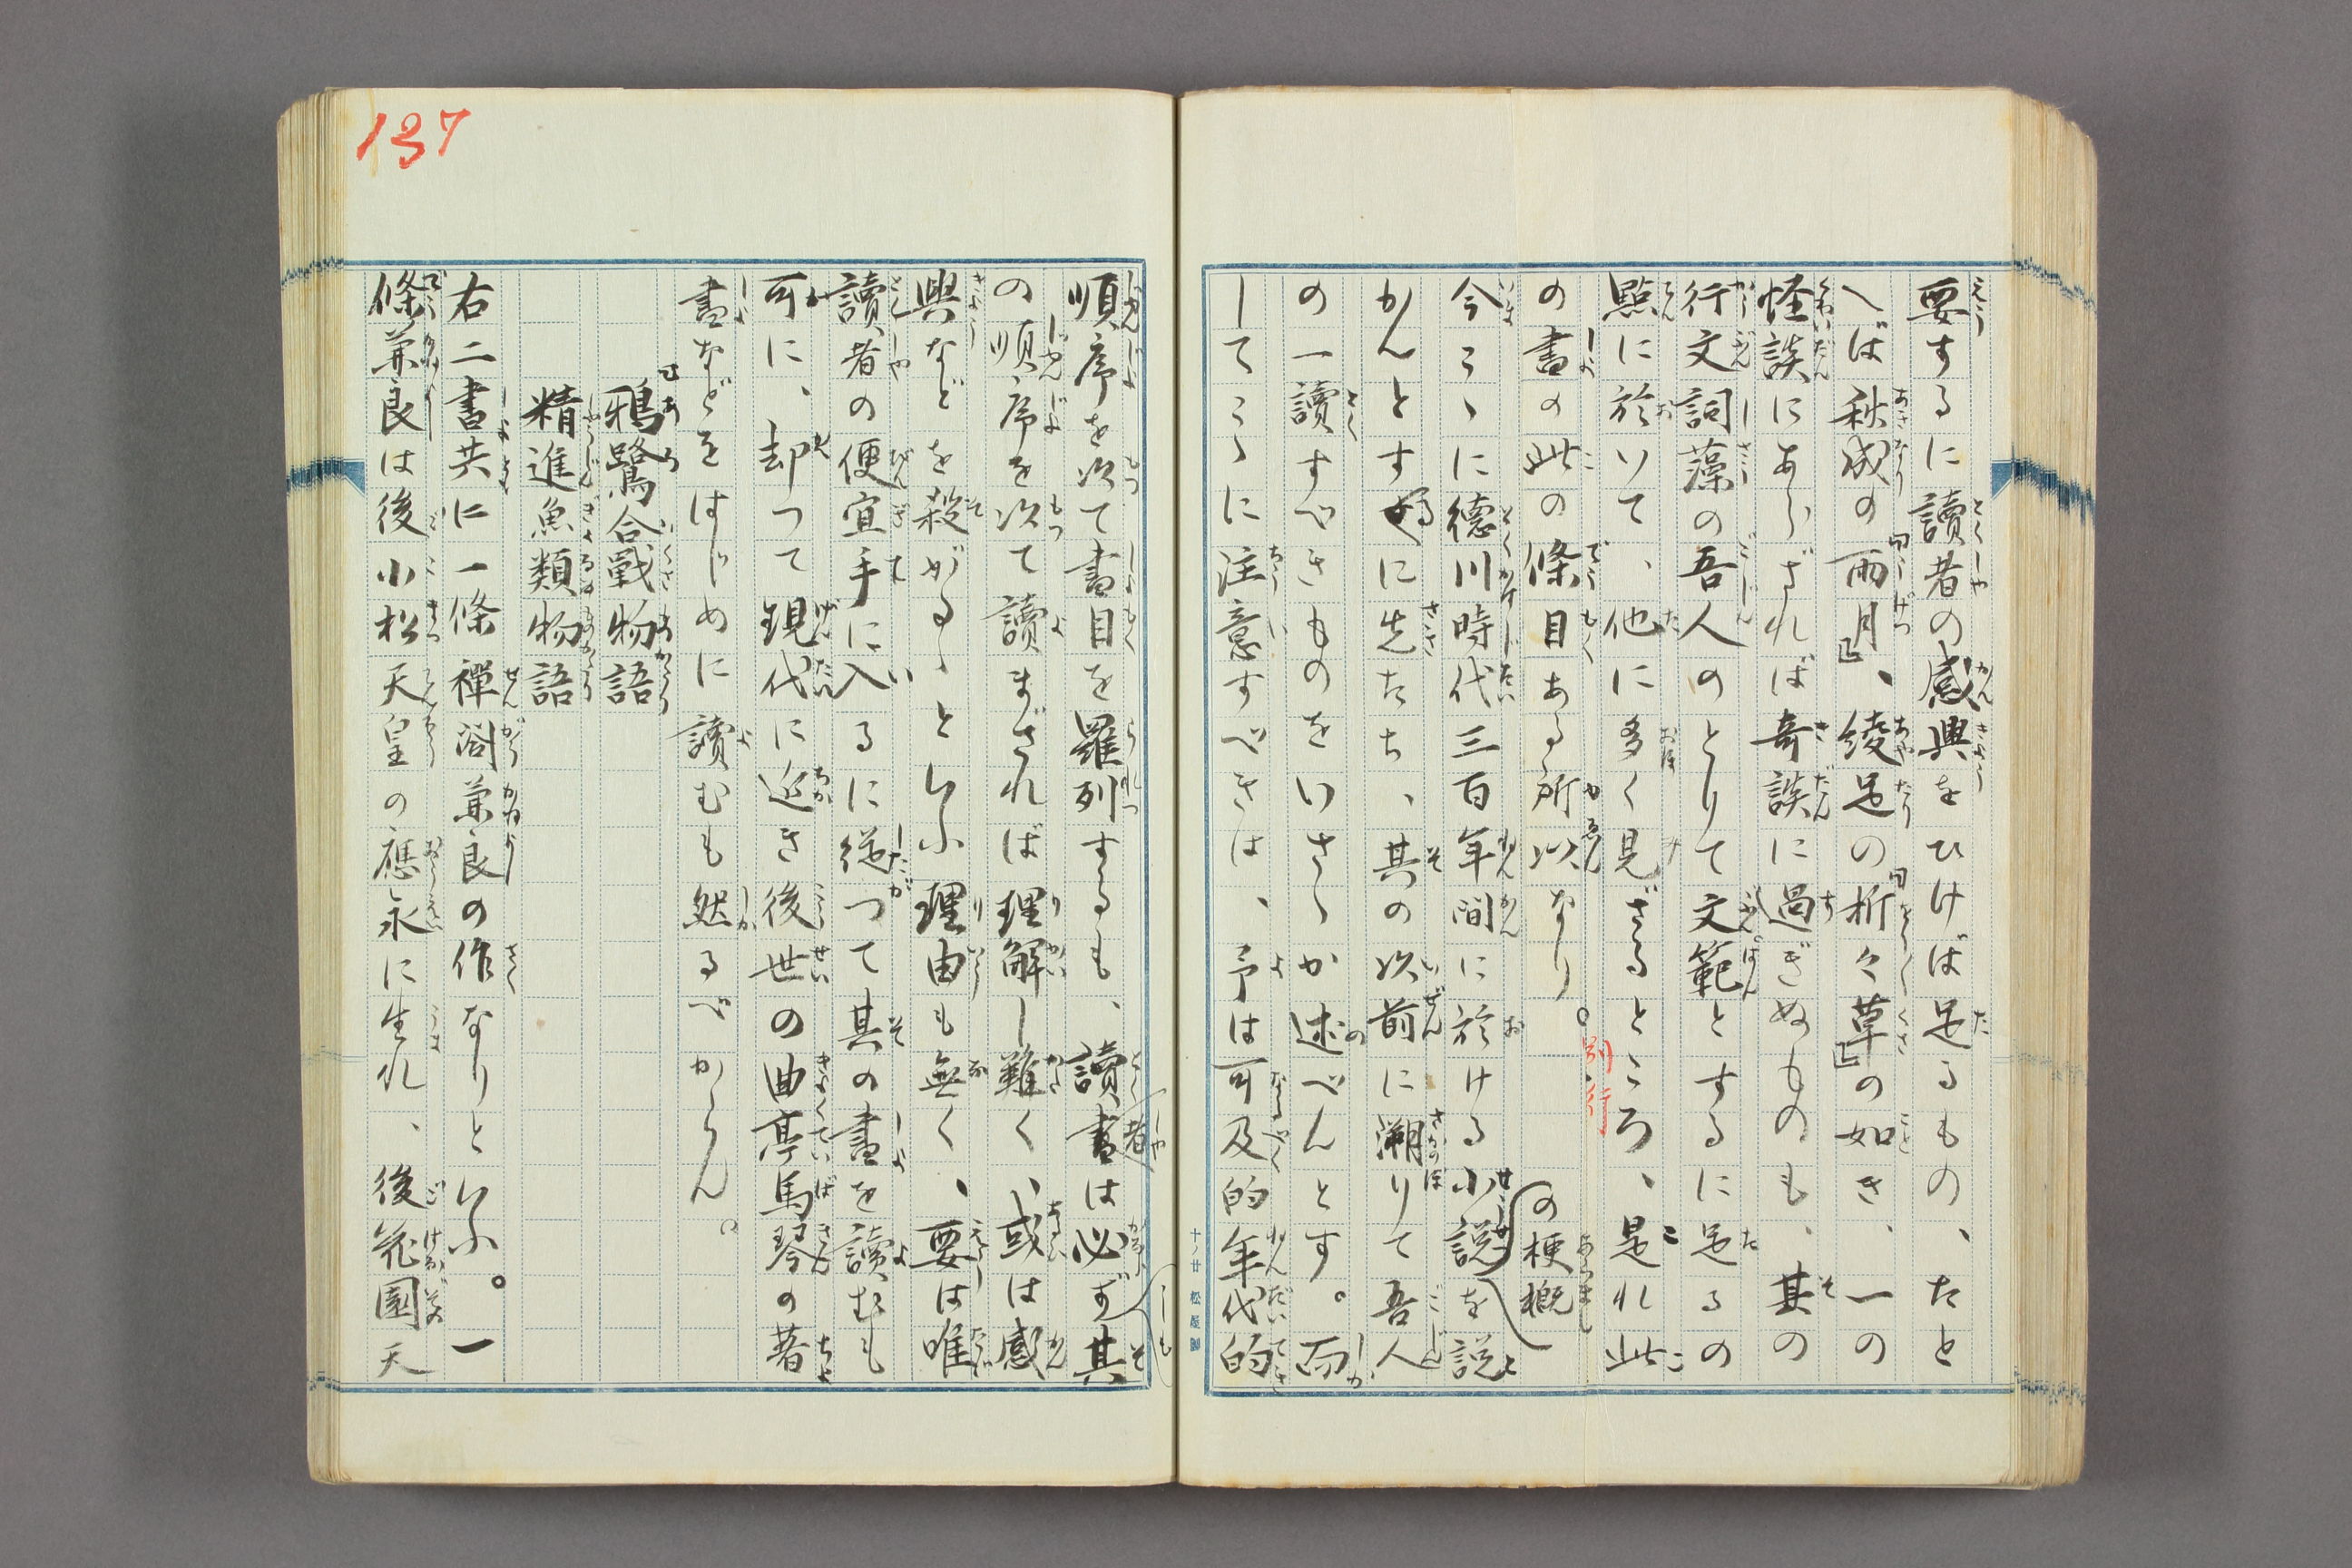 要するに讀者の感興をひけば足るもの、たと
へば秋成の『雨月』、綾足の『折々草』の如き、一の
怪談にあらざれば奇談に過ぎぬものも、其の
行文詞藻の吾人のとりて文範とするに足るの
點に於いて、他に多く見ざるところ、是れ此
の書の此の條目ある所以なり。
別行
今こゝに德川時代三百年間に於ける小説の梗概を説
かんとするに先たち、其の以前に溯りて吾人
の一讀すべきものをいさゝか述べんとす。而
してこゝに注意すべきは、予は可及的年代的
十ノ廿 松屋製
137
順序を以て書目を羅列するも、讀者は必ずしも其
の順序を以て讀まざれば理解し難く、或は感
興などを殺がるゝといふ理由も無く、要は唯
讀者の便宜手に入るに從つて其の書を讀むも
可に、却つて現代に近き後世の曲亭馬琴の著
書などをはじめに讀むも然るべからん。
鴉鷺合戰物語
精進魚類物語
右二書共に一條禪閤兼良の作なりといふ。一
條兼良は後小松天皇の應永に生れ、後花園天